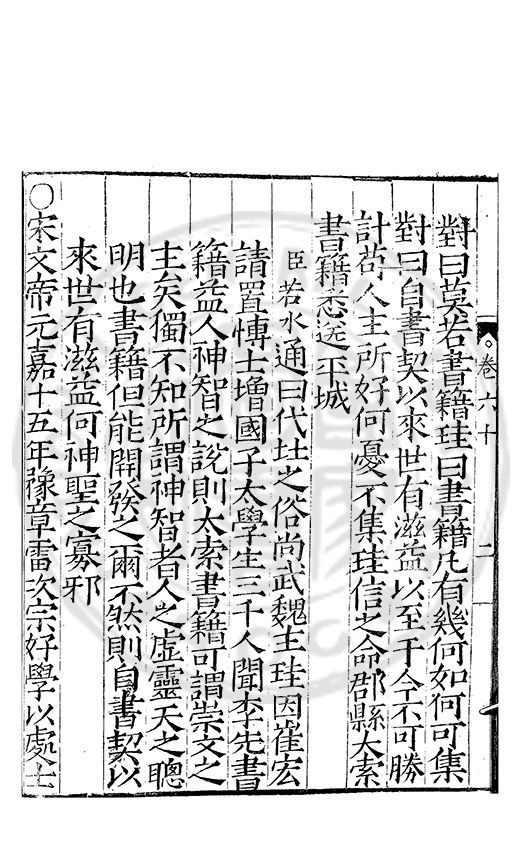 對曰莫若書籍珪曰書籍凡有幾何如何可集
對曰自書契以來世有滋益以至于今不可勝
計苟人主所好何憂不集珪信之命郡縣大索
書籍悉送平城
臣若水通曰代北之俗尚武魏主珪因崔宏
請置博士增國子太學生三千人聞李先書
籍益人神智之說則太索書籍可謂崇文之
主矣獨不知所謂神智者人之虛靈天之聰
明也書籍但能開發之爾不然則自書契以
來世有滋益何神聖之寡邪
○宋文帝元嘉十五年豫章雷次宗好學以處士
卷六十
二